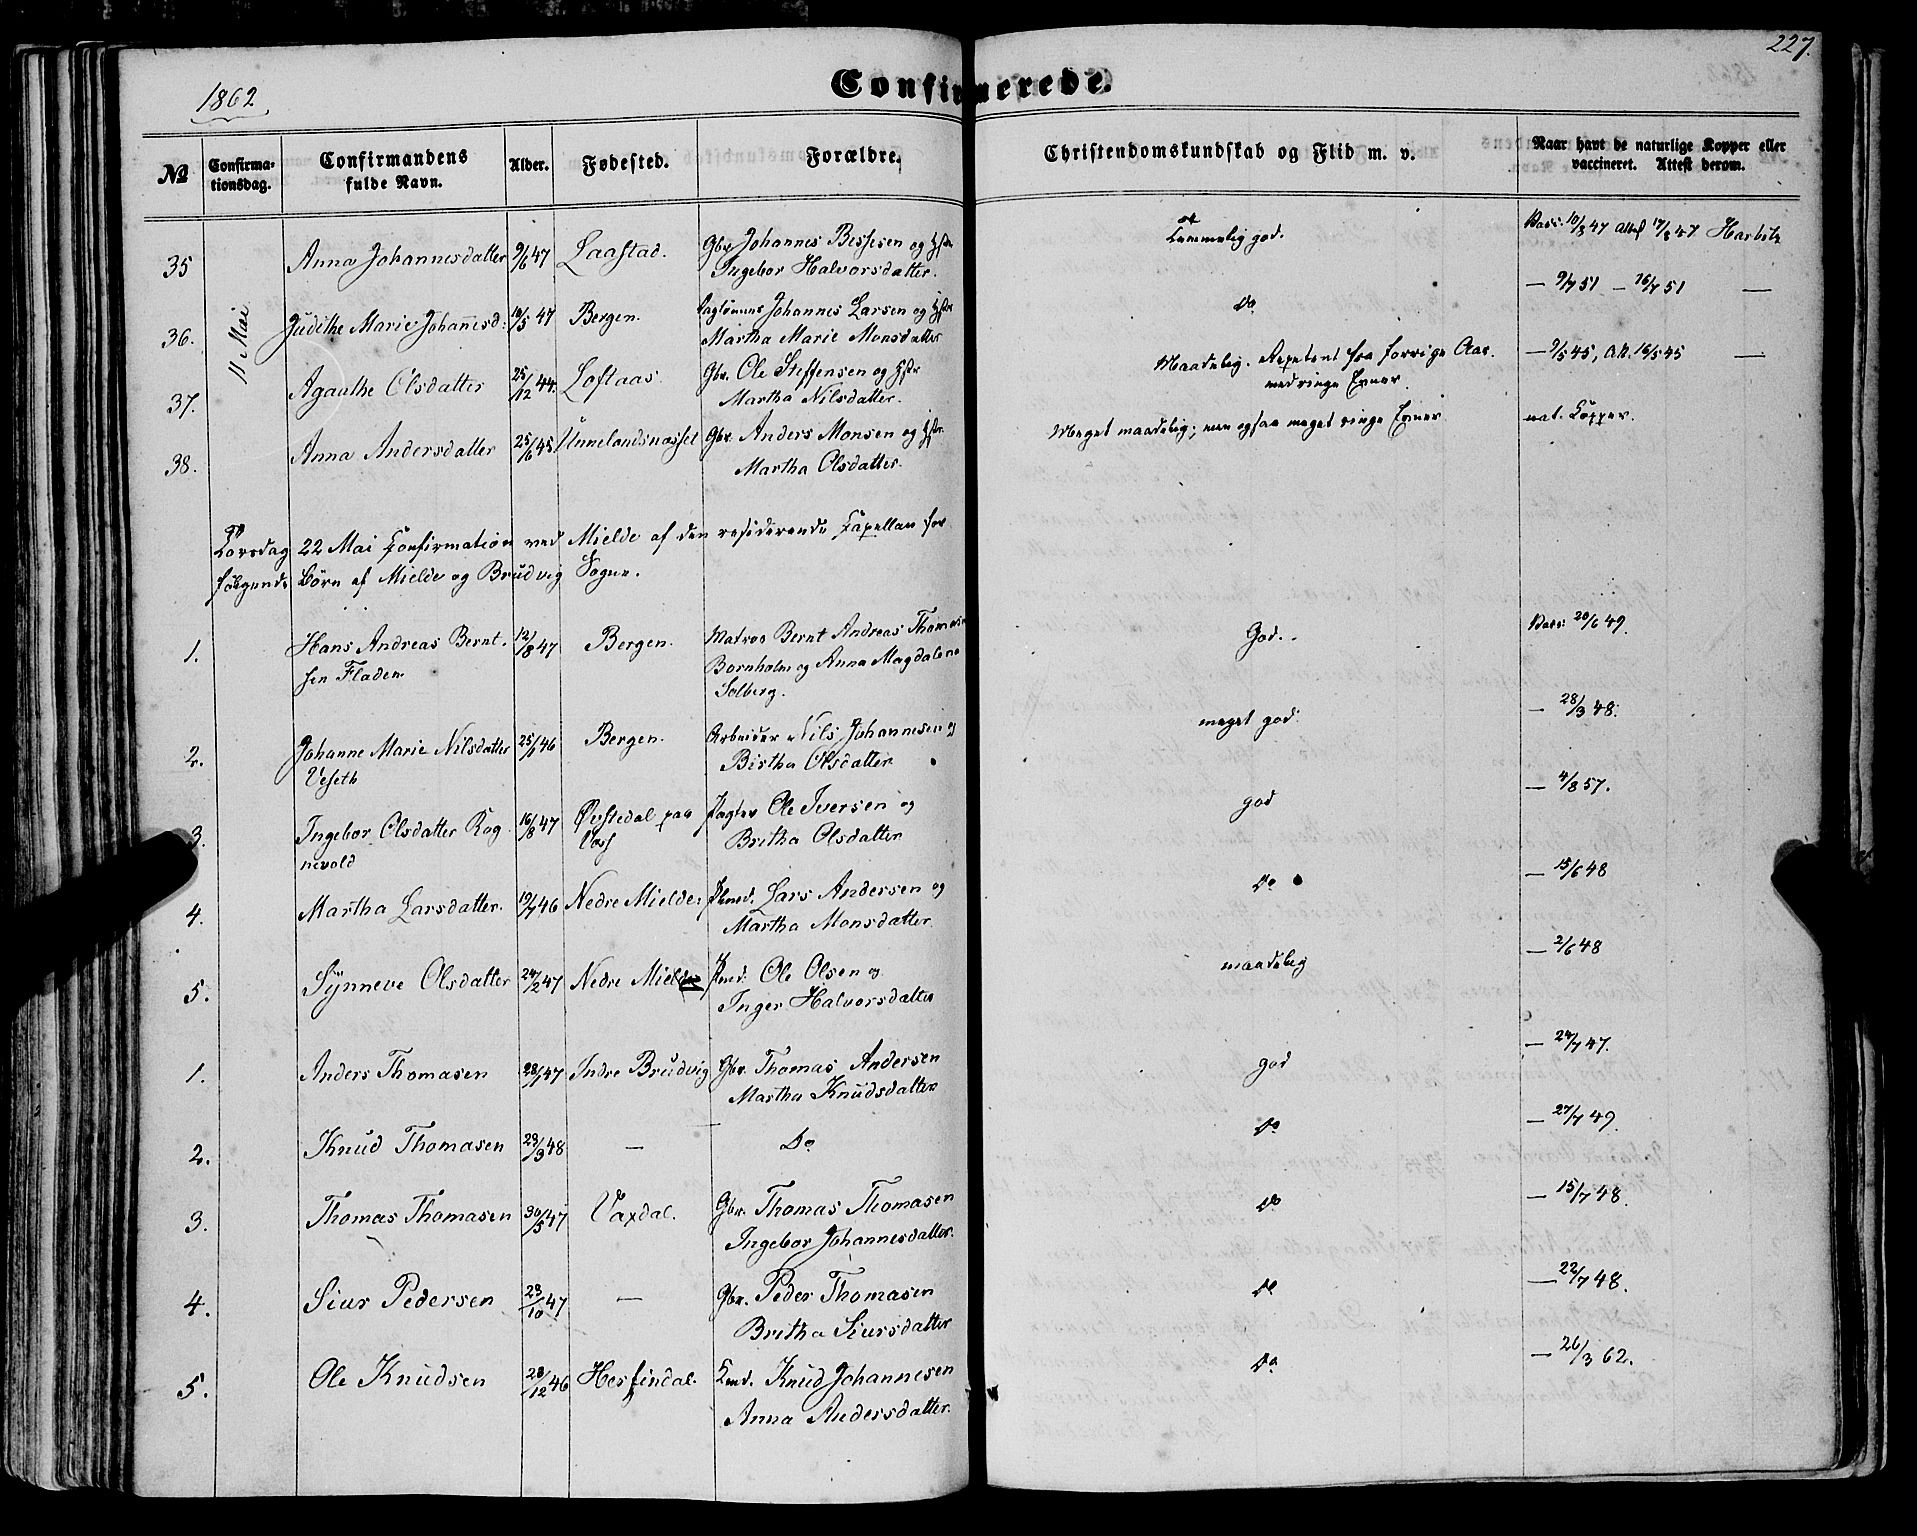 227.
1862
Confirmerede.
No Confirmationsdag. Confirmandens fulde Navn. Alder. Fødested. Forældre. Christendomskundskab og Flid m. v. Naar havt de naturlige Kopper eller vaccineret. Attest derom.
11 Mai
35 Anna Johannesdatter 9/6 47 Laastad. Gbr. Johannes
Ingebor Halvorsdatter. Temmelig god. Vacc. 10/8 47 Att. 17/8 47 Harbitz
36. Judithe Marie Johannesd: 10/5 47 Bergen. Johannes Larsen og Hstr
Martha Marie Monsdatter Do — 9/7 51 — 16/7 51 —
37. Agaathe Olsdatter 25/12 44. Loftaas. Gbr. Ole Steffensen og Hstr
Martha Nilsdatter. Maadelig. Repetent fra forrige Aar.
med ringe Evner. — 9/5 45, A.N. 16/5 45 —
38. Anna Andersdatter 25/6 45 Unnelandsnæsset Gbr. Anders Monsen og Hstr.
Martha Olsdatter. Meget maadelig; men ogsaa meget ringe Evner nat. Kopper.
Torsdag 22 Mai Confirmation ved Mielde af den residerende Capellan for
følgende Børn af Mielde og Brudvig Sogne.
1. Hans Andreas Bernt-
sen Fladen 12/8 47 Bergen. Matros Bernt Andreas Thomasen
Bornholm og Anna Magdalene
Solberg. God. Vacc: 20/6 49.
2. Johanne Marie Nilsdatter
Veseth 25/1 46 Bergen. Arbeider Nils Johannesen og
Birtha Olsdatter meget god. — 28/3 48.
3. Ingebor Olsdatter Rog
nevold 16/8 47 Øvstedal paa
Voss Ole Iversen og
Britha Olsdatter god — 4/8 57.
4. Martha Larsdatter. 19/7 46 Nedre Mielde Lars Andersen og
Martha Monsdatter Do — 15/6 48
5. Synneve Olsdatter 24/2 47 Nedre Mielde Ole Olsen og
Inger Halvorsdatter maadelig — 2/6 48
1. Anders Thomasen 28/1 47 Indre Brudvig Gbr. Thomas Andersen
Martha Knudsdatter god — 24/7 47.
2. Knud Thomasen 23/3 48 — Do Do — 27/7 49.
3. Thomas Thomasen 30/5 47 Vaxdal. Gbr. Thomas Thomasen
Ingebor Johannesdatter. Do — 15/7 48.
4. Siur Pedersen 23/10 47 — Gbr. Peder Thomasen
Britha Siursdatter Do — 22/7 48.
5. Ole Knudsen 28/12 46 Hesfindal. Knud Johannesen
Anna Andersdatter. Do — 26/3 62.